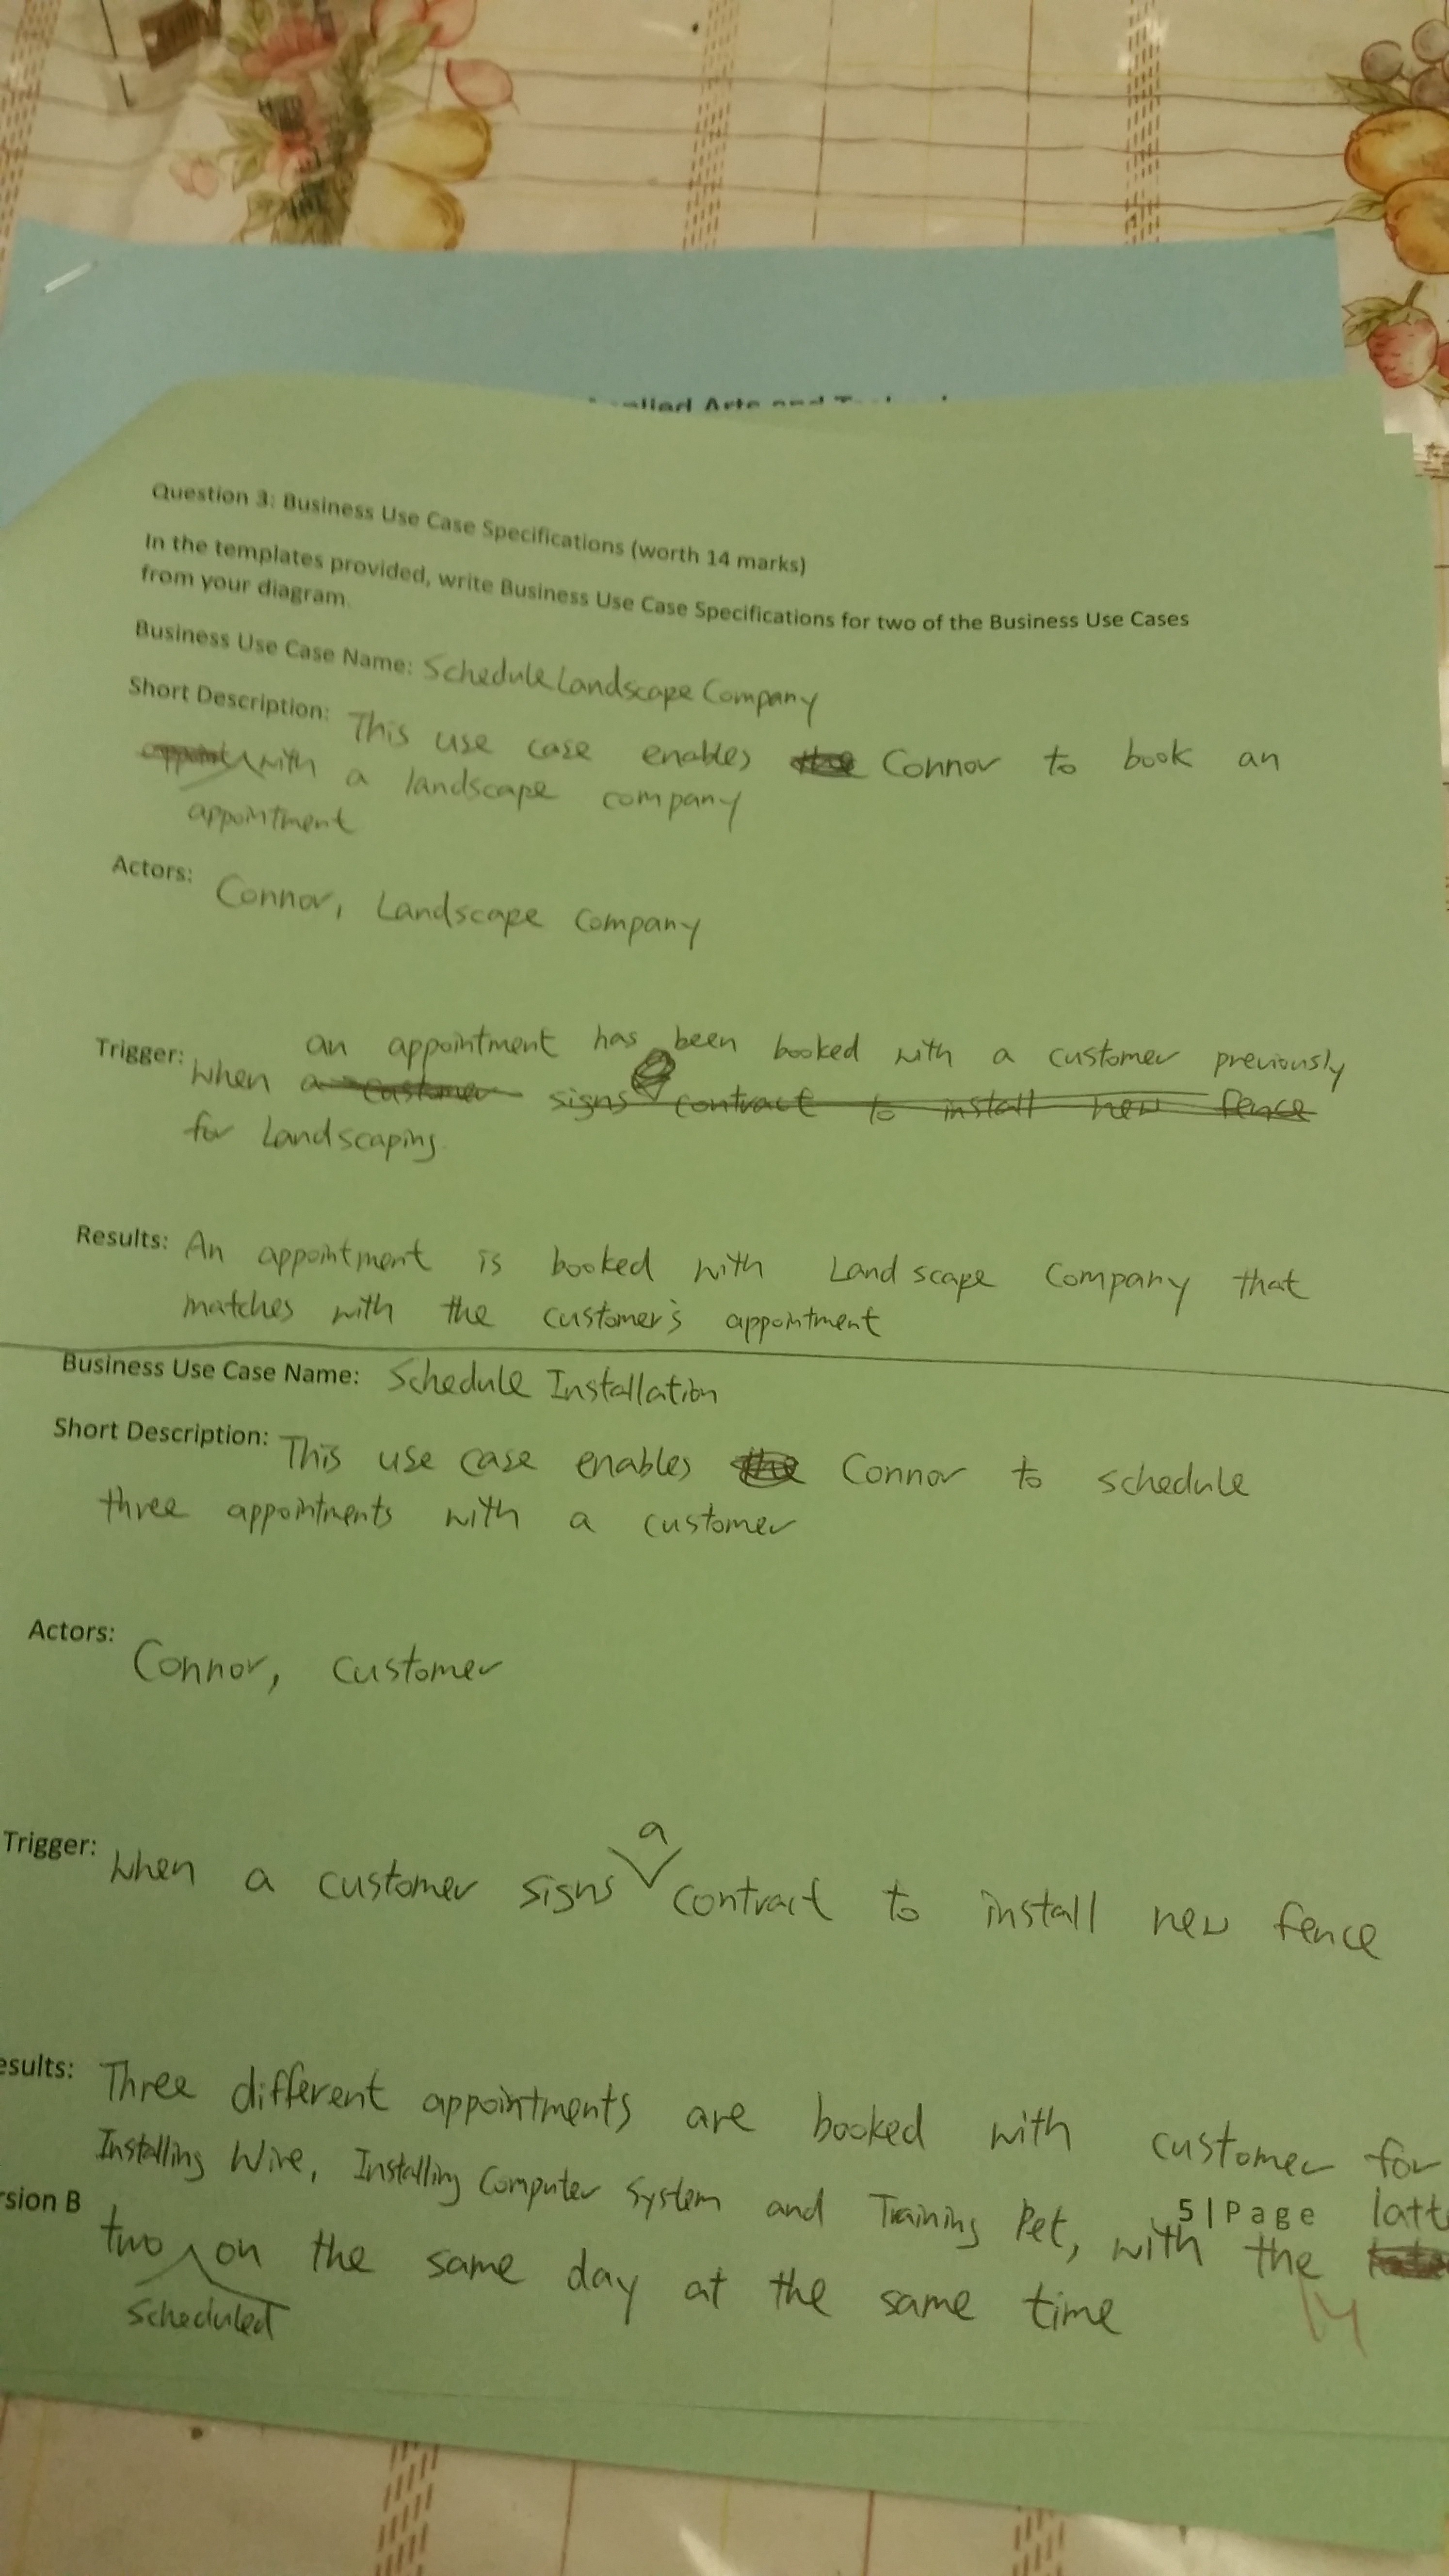 Question 3: Business Use Case Specifications (worth 14 marks)
In the templates provided, write Business Use Case Specifications for two of the Business Use Cases
from your diagram.
Business Use Case Name: Schedule Landscape Company
Short Description: This use case enables Connor to book an
with a landscape company
appointment
Actors: Connor, Landscape Company
an appointment has been booked with a customer previously
Trigger: when a customer signs contract to install new fence
for Landscaping.
Results: An appointment is booked with Landscape Company that
matches with the customer's appointment
Business Use Case Name: Schedule Installation
Short Description: This use case enables the Connor to schedule
three appointments with a customer
Actors: Connor, customer
a
Trigger: when a customer signs contract to install new fence
esults: Three different appointments are booked with customer for
Installing Wire, Installing Computer System and Training Pet, with the latt
rsion B
5 | Page
two on the same day at the same time
scheduled
14